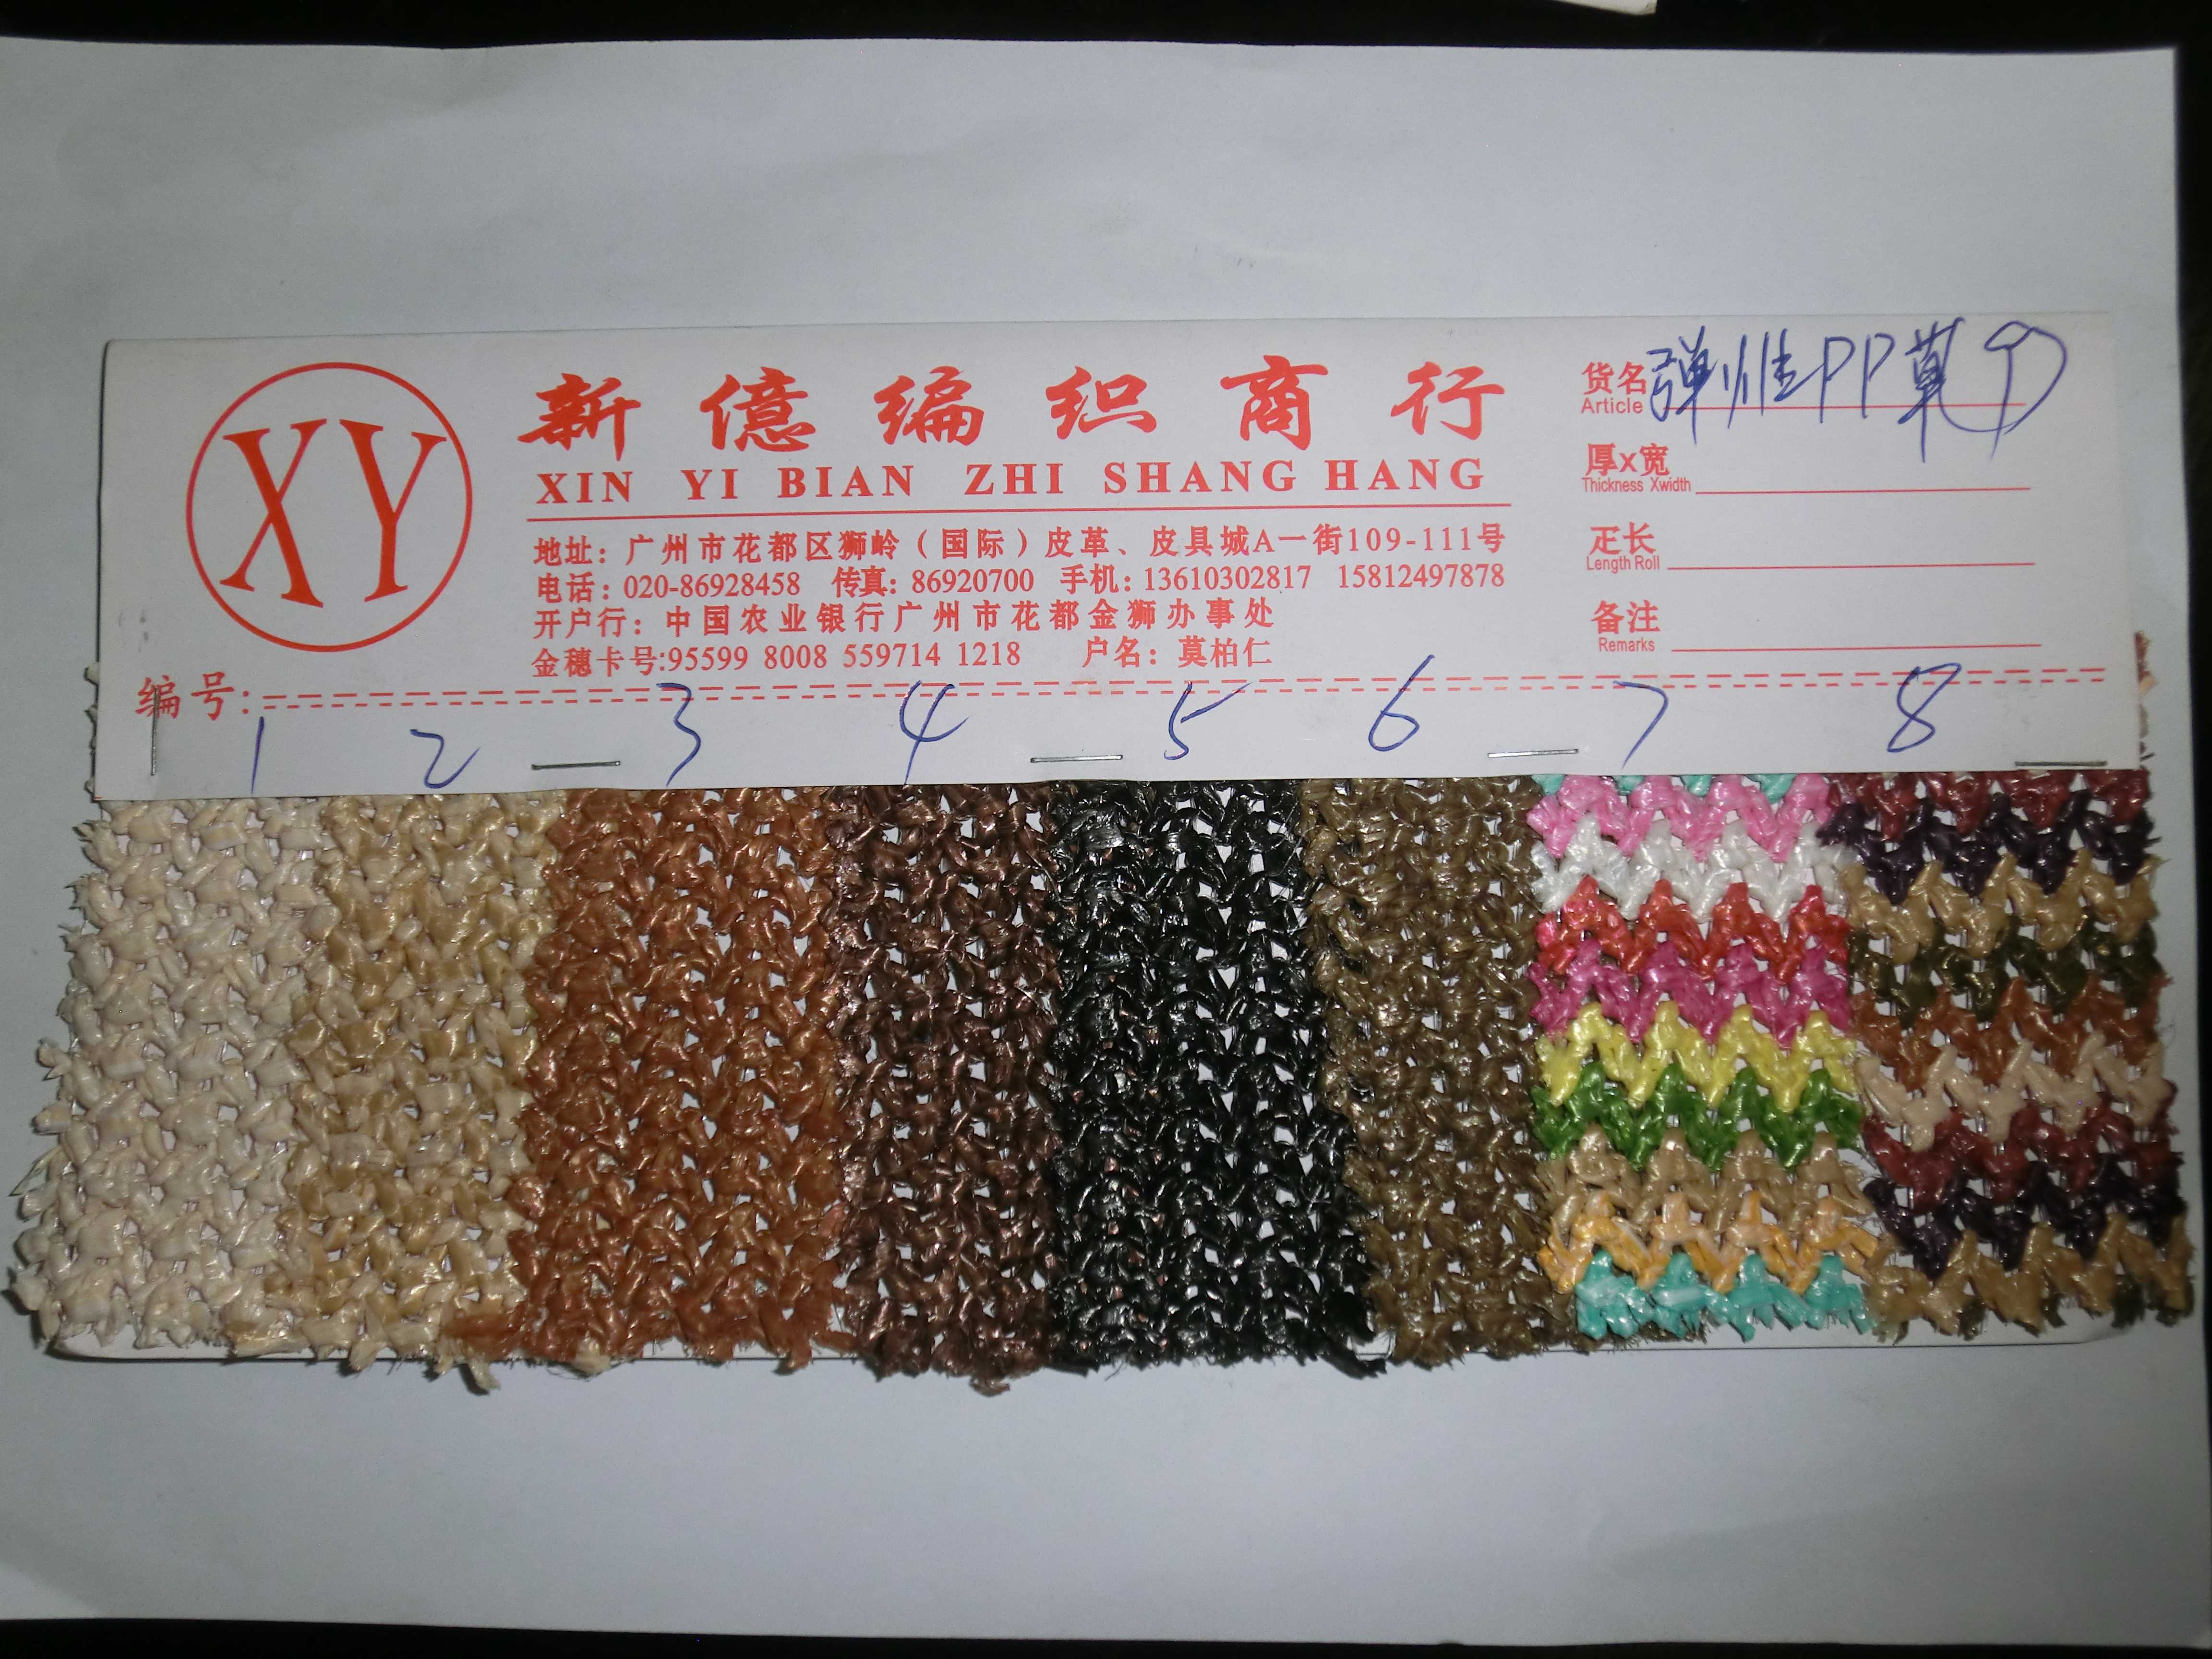 XY
新億编织商行
XIN YI BIAN ZHI SHANG HANG
地址：广州市花都区狮岭（国际）皮革、皮具城A一街109-111号
电话：020-86928458 传真：86920700 手机：13610302817 15812497878
开户行：中国农业银行广州市花都金狮办事处
金穗卡号:95599 8008 559714 1218 户名：莫柏仁
货名 弹性PP草
Article
厚x宽
Thickness Xwidth
疋长
Length Roll
备注
Remarks
编号:
1 2 3 4 5 6 7 8